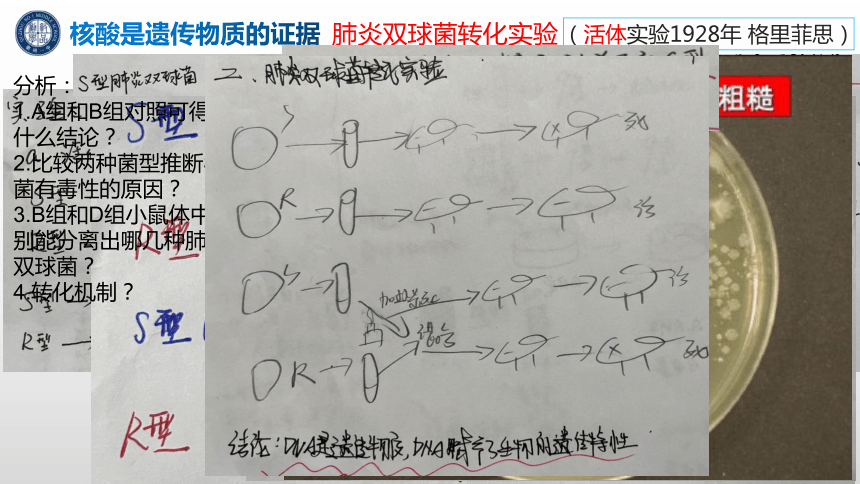 核酸是遗传物质的证据 肺炎双球菌转化实验（活体实验1928年 格里菲思）
分析：
1.A组和B组对照可得
什么结论？
2.比较两种菌型推断
菌有毒性的原因？
3.B组和D组小鼠体中
别能分离出哪几种肺
双球菌？
4.转化机制？
S型肺炎双球菌
S型
R型
S型
R型
S型
R型
二、肺炎双球菌转化实验
S
死
R
活
S
加热杀死
活
R
混合
死
结论：DNA是遗传物质，DNA赋予了生物的遗传特性
粗糙